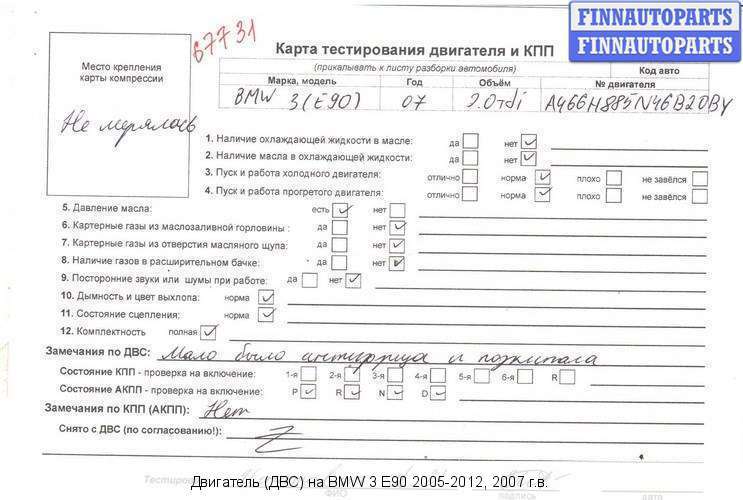 FINNAUTOPARTS
FINNAUTOPARTS
67731
Место крепления
карты компрессии
Не мерялось
Карта тестирования двигателя и КПП
(прикалывать к листу разборки автомобиля)
Код авто
Марка, модель Год Объём № двигателя
BMW 3(E90) 07 2.0 tdi A466H885N46B20BY
1. Наличие охлаждающей жидкости в масле: да нет
2. Наличие масла в охлаждающей жидкости: да нет
3. Пуск и работа холодного двигателя: отлично норма плохо не завёлся
4. Пуск и работа прогретого двигателя: отлично норма плохо не завёлся
5. Давление масла: есть нет
6. Картерные газы из маслозаливной горловины : да нет
7. Картерные газы из отверстия масляного щупа: да нет
8. Наличие газов в расширительном бачке: да нет
9. Посторонние звуки или шумы при работе: да нет
10. Дымность и цвет выхлопа: норма
11. Состояние сцепления: норма
12. Комплектность полная
Замечания по ДВС: Мало было антифриза и
Состояние КПП - проверка на включение: 1-я 2-я 3-я 4-я 5-я 6-я R
Состояние АКПП - проверка на включение: P R N D
Замечания по КПП (АКПП): Нет
Снято с ДВС (по согласованию!): Z
ФИО подпись дата
Двигатель (ДВС) на BMW 3 E90 2005-2012, 2007 г.в.